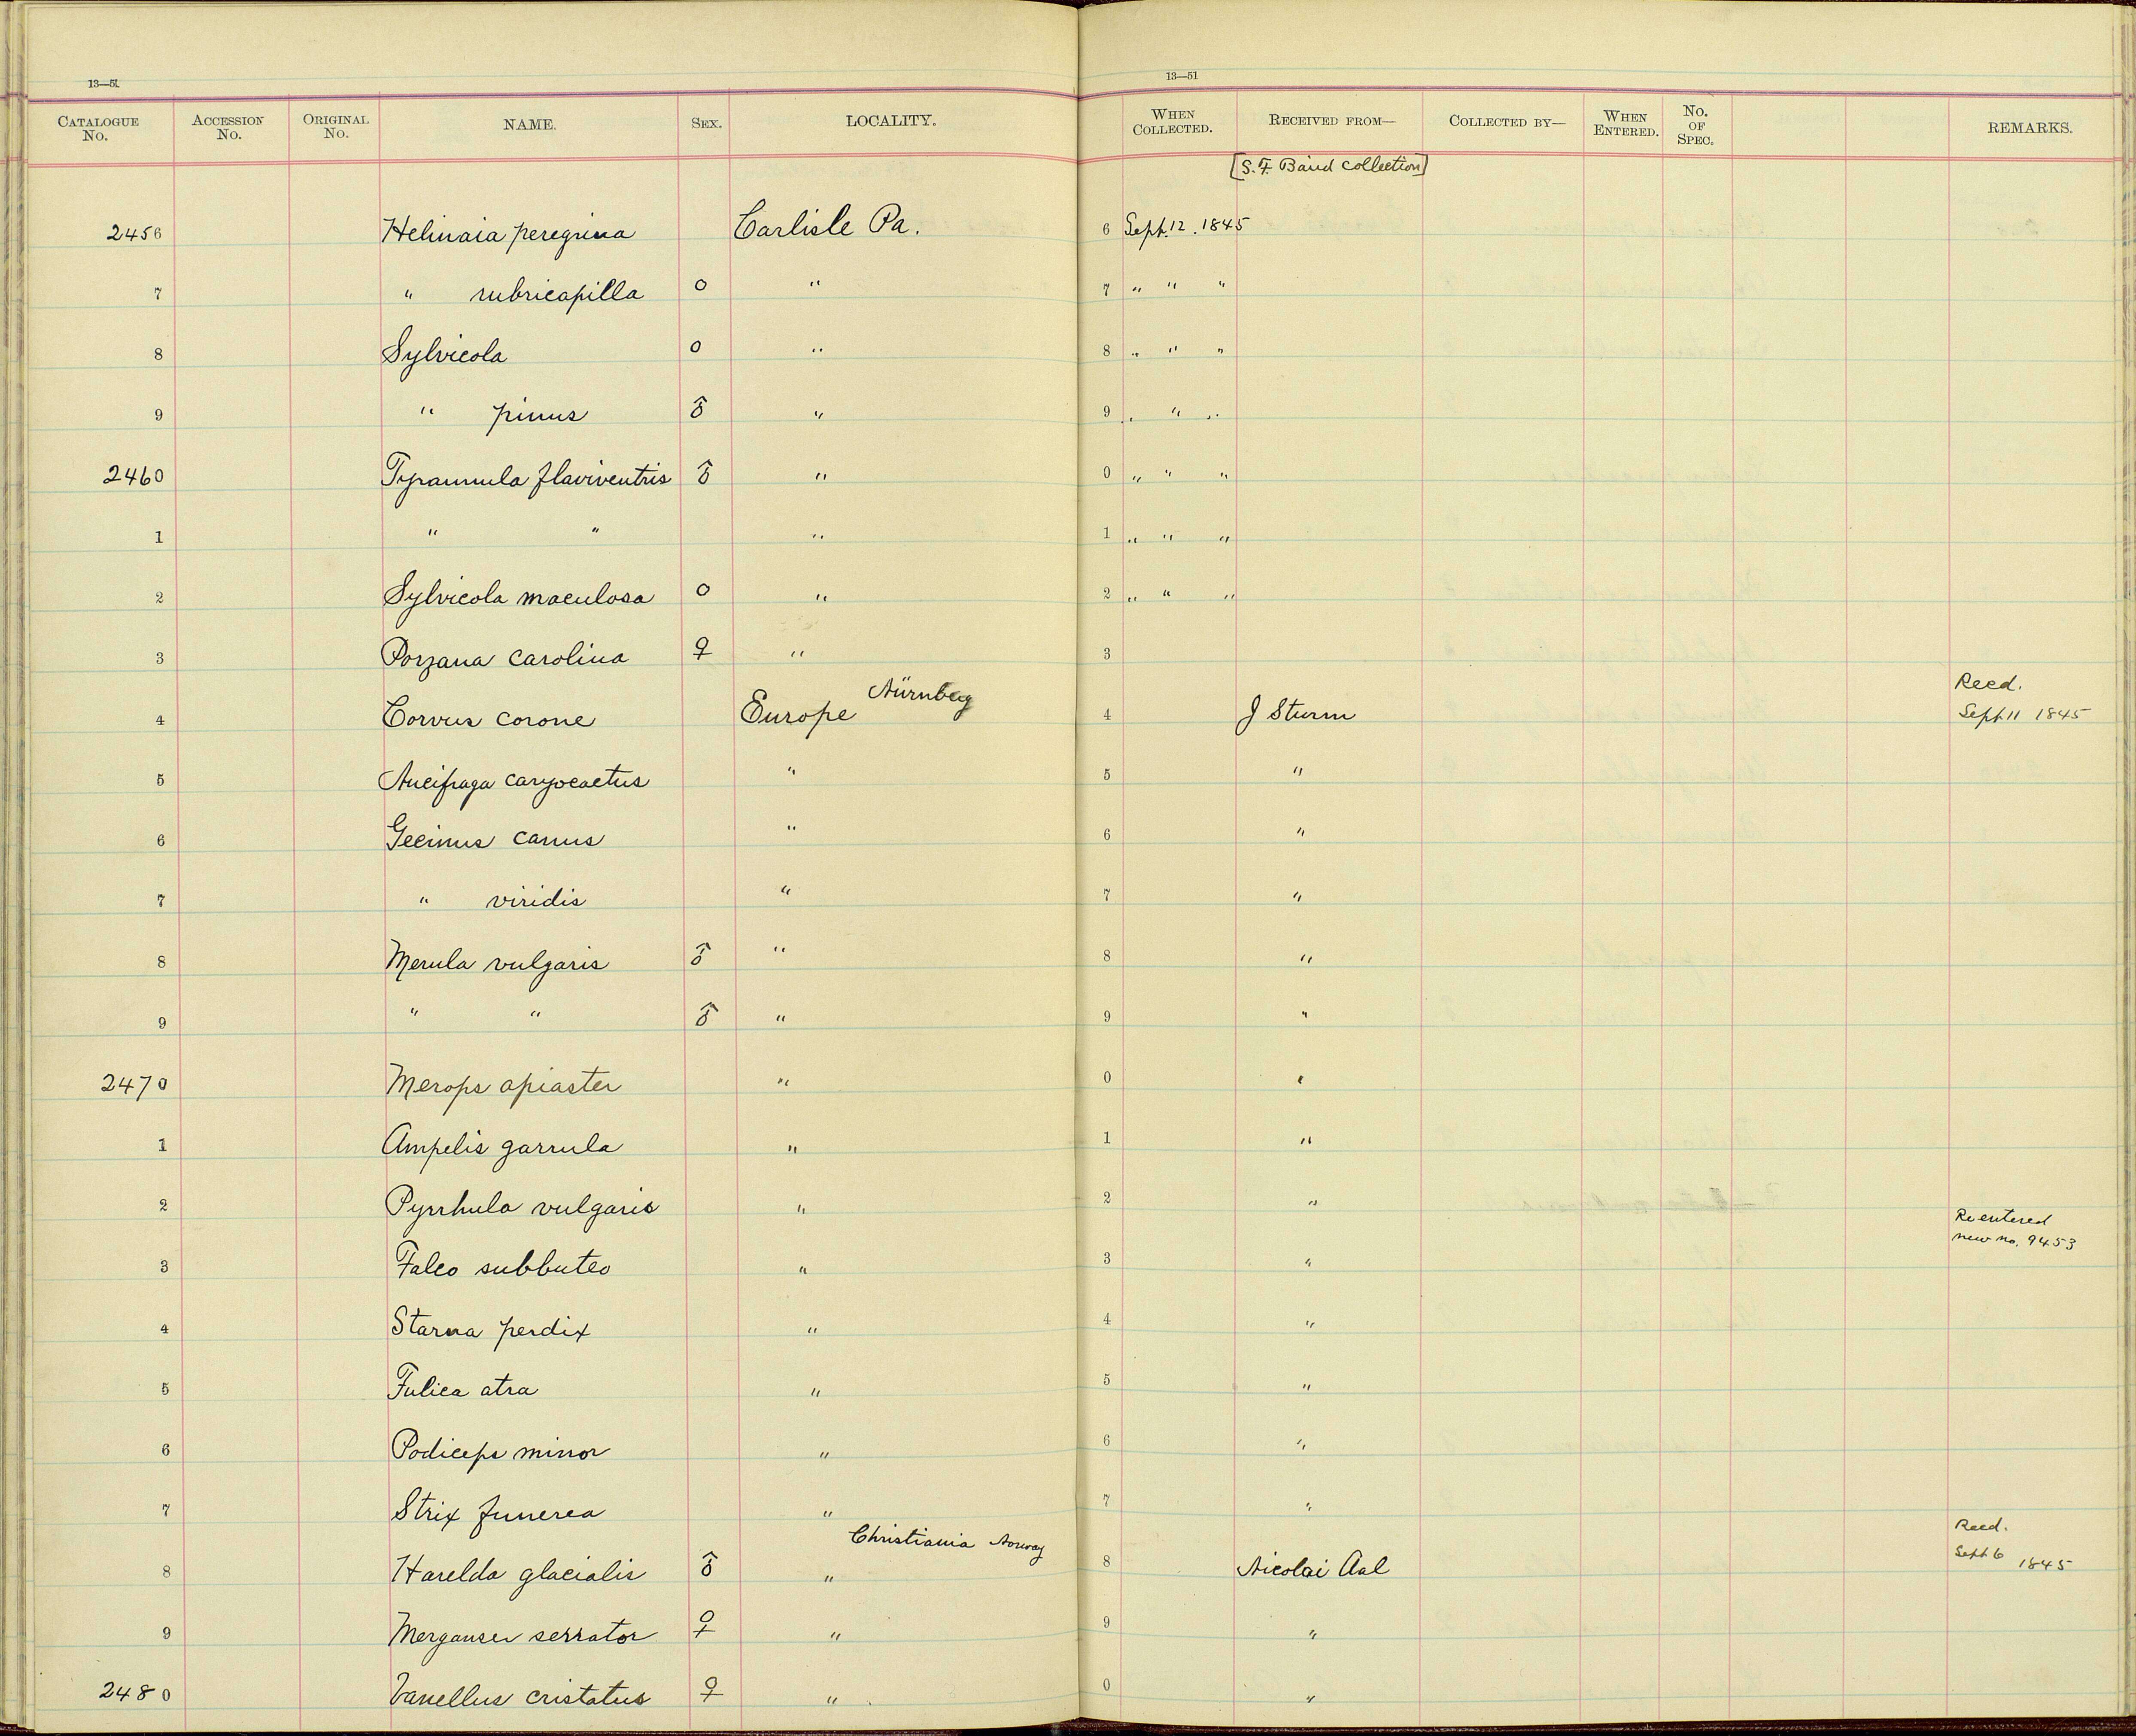 13—51
13—51
CATALOGUE No. ACCESSION No. ORIGINAL No. NAME. SEX. LOCALITY. WHEN COLLECTED. RECEIVED FROM— COLLECTED BY— WHEN ENTERED. No. OF SPEC. REMARKS.
[S. F. Baird collection]
2456 Helinaia peregrina Carlisle Pa. 6 Sept. 12. 1845
7 " rubricapilla O " 7 " " "
8 Sylvicola O " 8 " " "
9 " pinus ♂ " 9 " " "
2460 Tyrannula flaviventris ♂ " 0 " " "
1 " " " 1 " " "
2 Sylvicola maculosa O " 2 " " "
3 Porzana carolina ♀ " 3
4 Corvus corone Europe Nürnberg 4 J Sturm Recd. Sept 11 1845
5 Nucifraga caryocactus " 5 "
6 Gecinus canus " 6 "
7 " viridis " 7 "
8 Merula vulgaris ♂ " 8 "
9 " " ♂ " 9 "
2470 Merops apiaster " 0 "
1 Ampelis garrula " 1 "
2 Pyrrhula vulgaris " 2 "
3 Falco subbuteo " 3 " Reentered new no. 9453
4 Starna perdix " 4 "
5 Fulica atra " 5 "
6 Podiceps minor " 6 "
7 Strix funerea " 7 "
8 Harelda glacialis ♂ " Christiania Norway 8 Nicolai Aal Recd. Sept 6 1845
9 Merganser serrator ♀ " 9 "
2480 Vanellus cristatus ♀ " 0 "